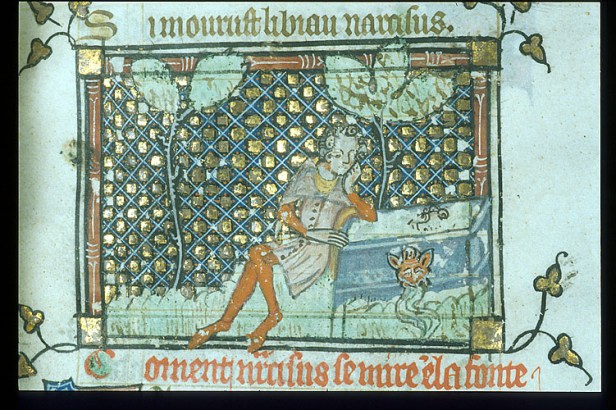 Si mourust li biau narcisus.
Coment narcisus se mire ē la fonte